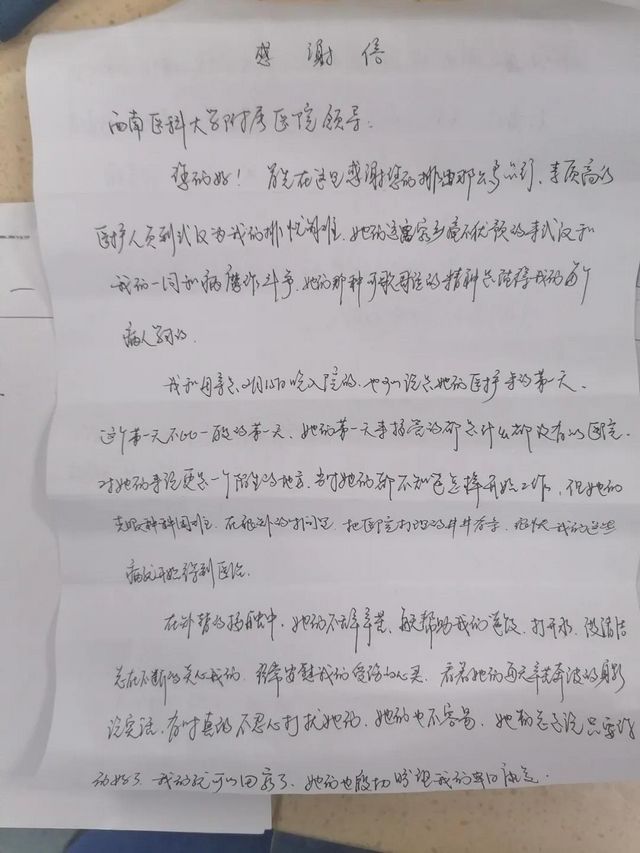 感谢信
西南医科大学附属医院领导:
您们好！首先在这里感谢您们派出那么专业、素质高的
医护人员到武汉为我们排忧解难。她们远离家乡毫不犹豫的来武汉和
我们一同和病魔作斗争，她们那种可歌可泣的精神总值得我们每个
病人学习的。
我和母亲是2月15日晚入院的，也可以说是她们医护来的第一天。
这个第一天不比一般的第一天，她们第一天来接管的都是什么都没有的医院。
对她们来说更是一个陌生的地方，当时她们都不知道怎样开始工作，但她们
克服种种困难，在很短的时间里，把医院打理的井井有条，很快我们这些
病友开始得到医治。
在补替的接触中，她们不辞辛苦，每天帮助我们送饭、打开水、做清洁
总在不断的关心我们，经常安慰我们受伤的心灵，看着她们每天辛苦奔波的身影
说实话，有时真的不忍心打扰她们，她们也不容易，她们总是说只要你
们好了，我们就可以回家了，她们也殷切盼望我们早日康复。